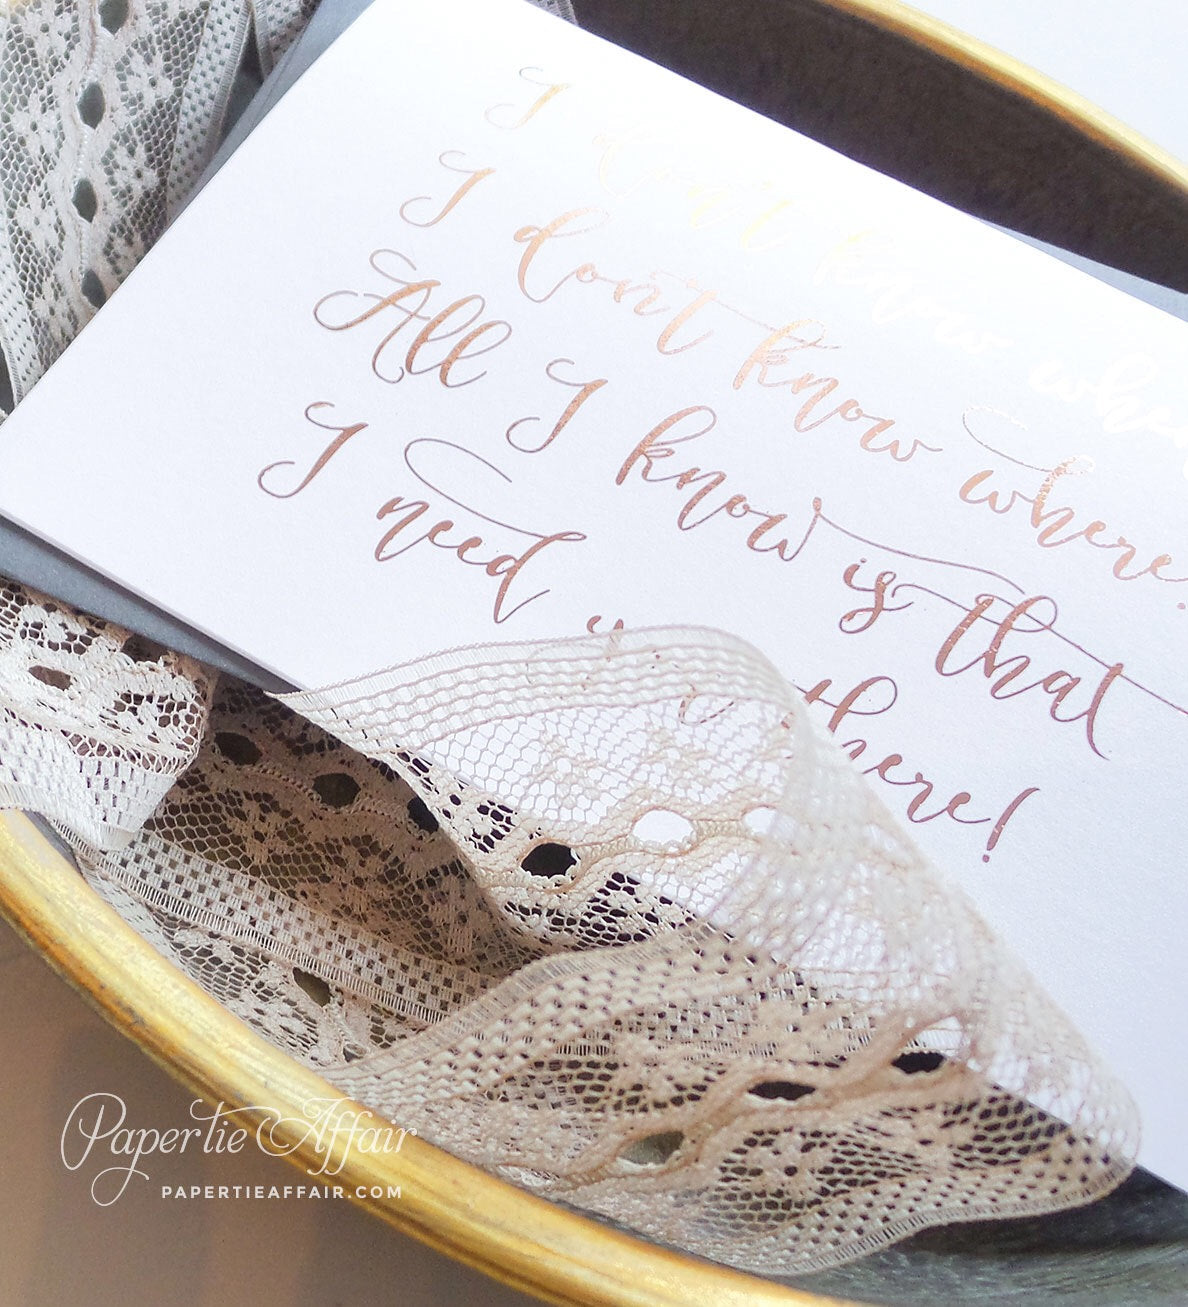 I don't know whe
I don't know where.
All I know is that
I need you there!
Papertie Affair
PAPERTIEAFFAIR.COM